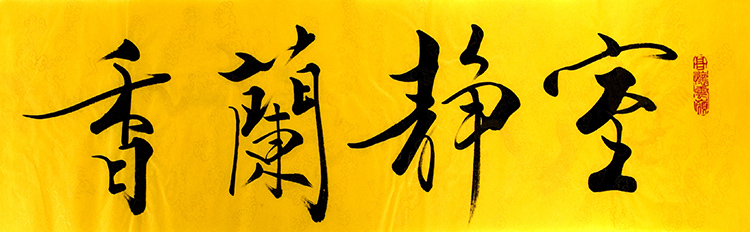 室静蘭香